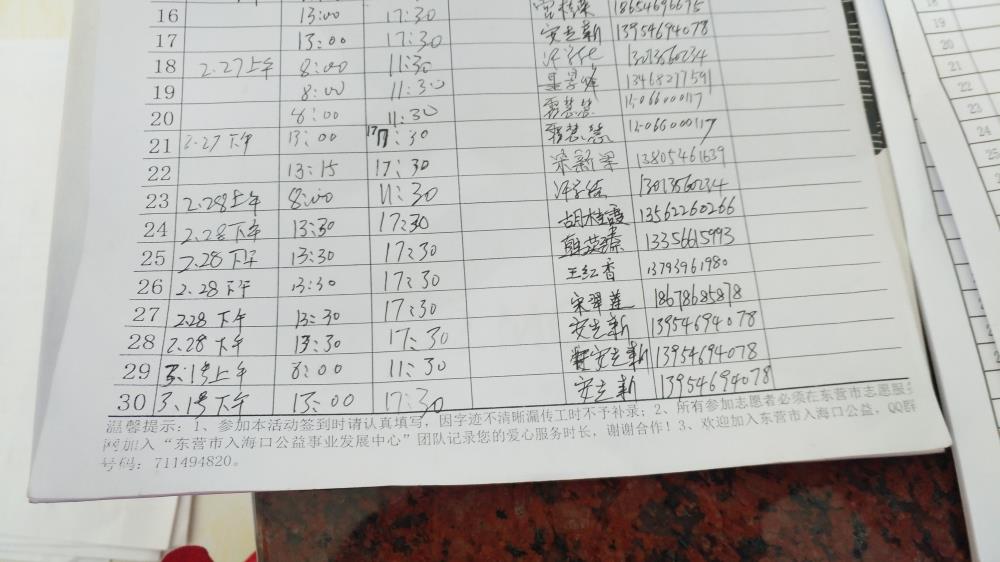 16 13:00 17:30 18654696675
17 13:00 17:30 安立新 13954694078
18 2.27上午 8:00 11:30 13013560234
19 8:00 11:30 13468217591
20 8:00 11:30 霍慧慧 15066000117
21 2.27下午 13:00 17:30 霍慧慧 15066000117
22 13:15 17:30 梁新梁 13805461639
23 2.28上午 8:00 11:30 13013560234
24 2.28下午 13:30 17:30 胡桂霞 13562260266
25 2.28下午 13:30 17:30 13356615993
26 2.28下午 13:30 17:30 王红香 13793961980
27 2.28下午 13:30 17:30 宋翠莲 18678685878
28 2.28下午 13:30 17:30 安立新 13954694078
29 3.1号上午 8:00 11:30 安立新 13954694078
30 3.1号下午 13:00 17:30 安立新 13954694078
温馨提示：1、参加本活动签到时请认真填写，因字迹不清晰漏传工时不予补录；2、所有参加志愿者必须在东营市志愿服务
网加入“东营市入海口公益事业发展中心”团队记录您的爱心服务时长，谢谢合作！3、欢迎加入东营市入海口公益，QQ群
号码：711494820。
19
20
21
22
23
24
25